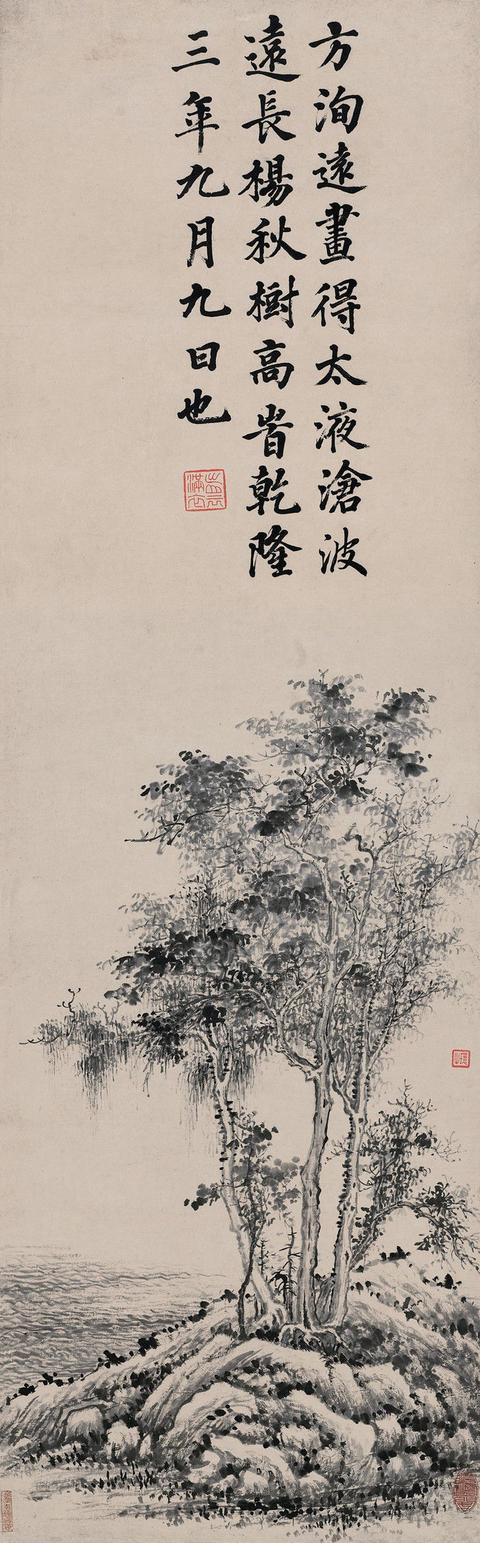 方洵遠畫得太液滄波
遠長楊秋樹高旹乾隆
三年九月九日也